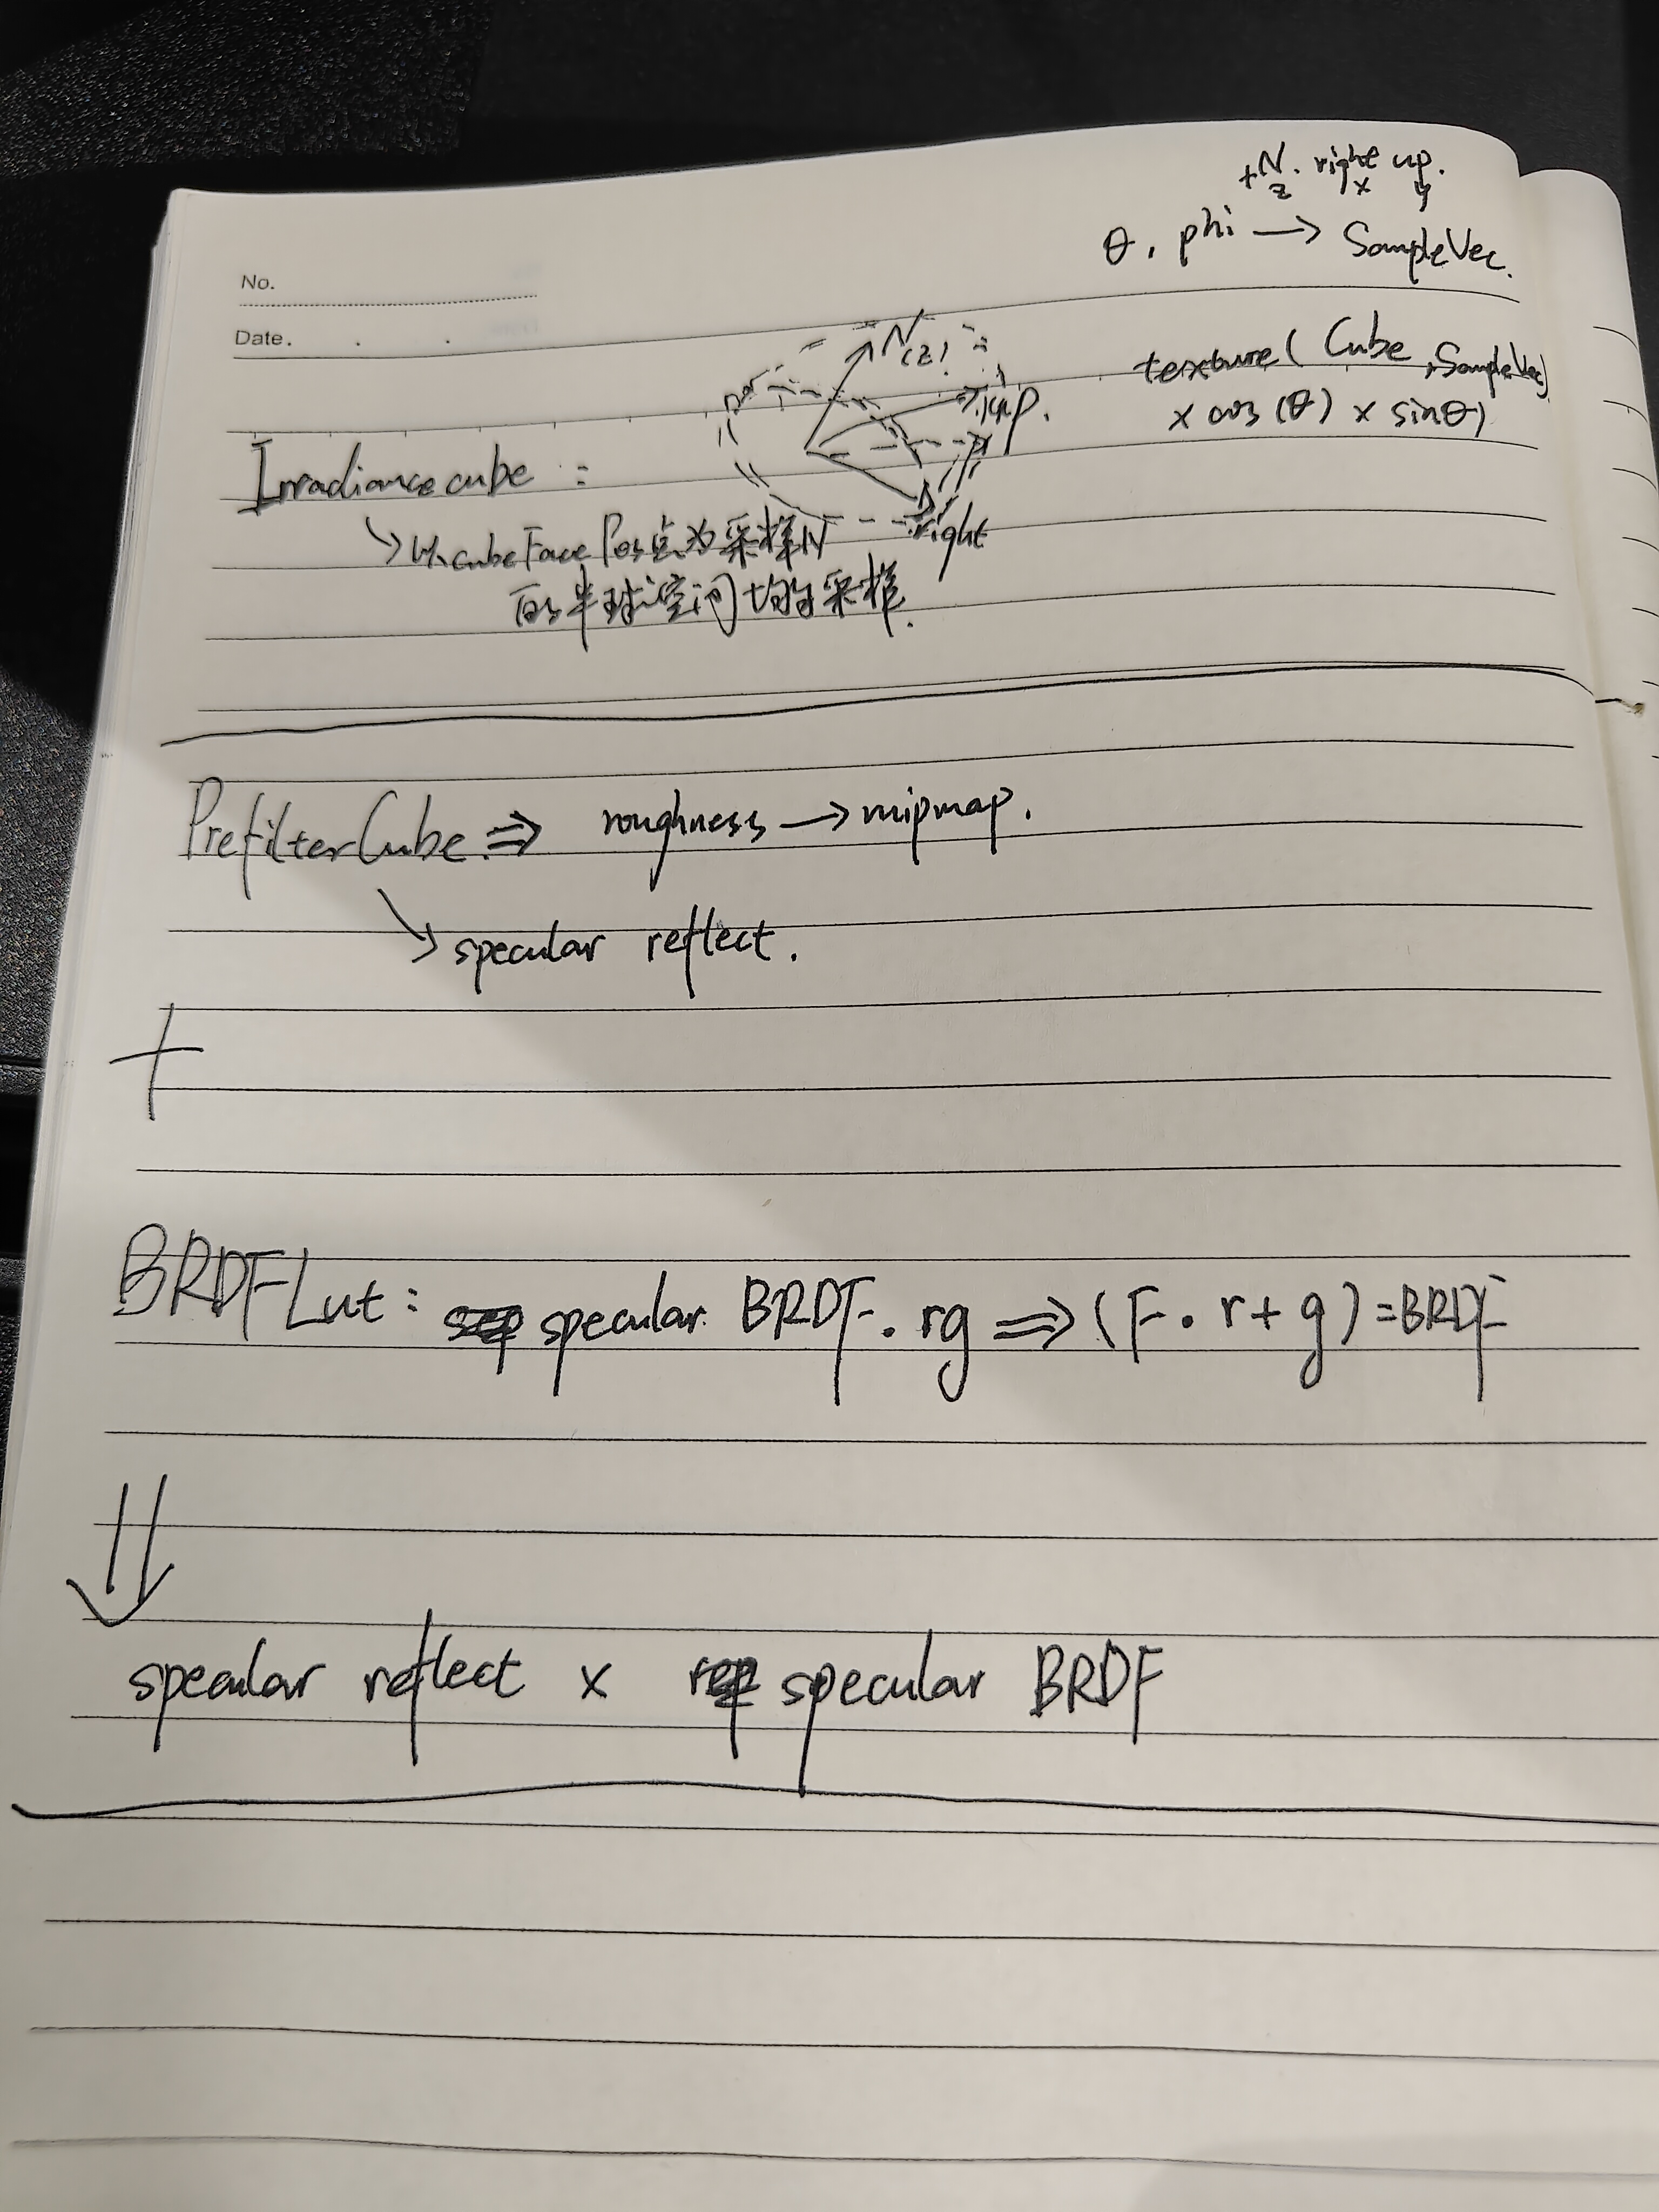 +N. right up.
z x y
θ, phi → SampleVec.
No.
Date. . .
N
(z)
up.
right
texture(Cube, SampleVec)
× cos(θ) × sinθ)
Irradiancecube :
↘ 以cubeFace Pos点为采样N
的半球空间均匀采样.
PrefilterCube. ⇒ roughness → mipmap.
↘ specular reflect.
+
BRDFLut: specular. BRDF. rg ⇒ (F • r + g) = BRDF
⇓
specular reflect × specular BRDF